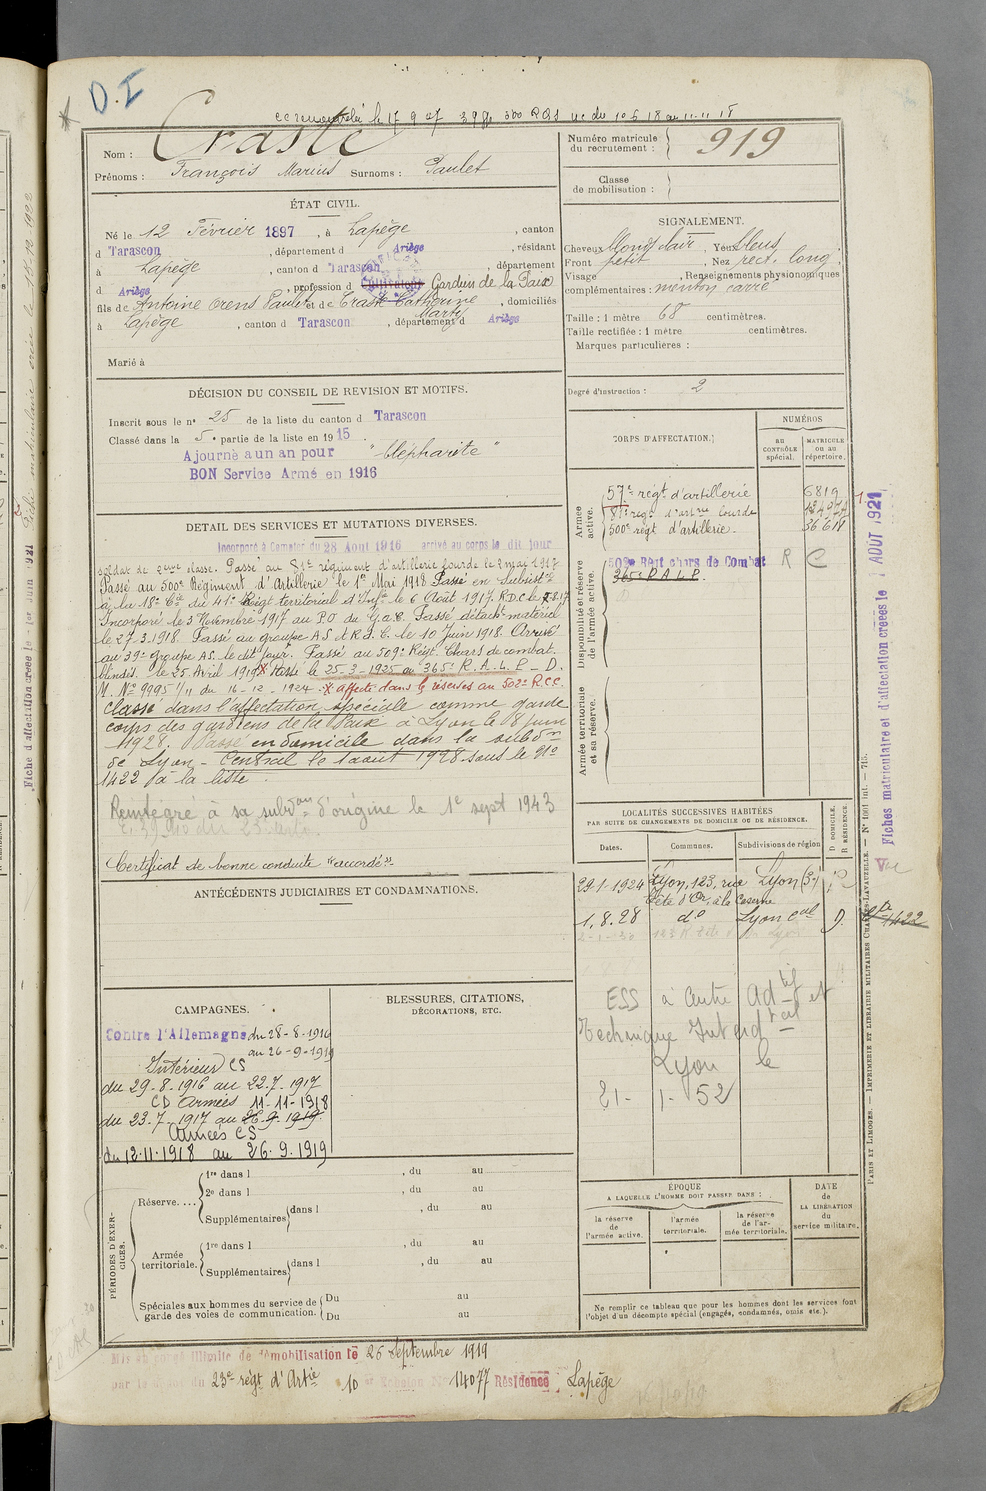 D.I
Nom : Craste
Prénoms : François Marius Surnoms : Paulet
Numéro matricule du recrutement : 919
Classe de mobilisation :
ÉTAT CIVIL.
Né le 12 Février 1897, à Lapège, canton
d Tarascon, département d Ariège, résidant
à Lapège, canton d Tarascon, département
d Ariège, profession d Cultivateur Gardien de la Paix
fils de Antoine Orens Paulet et de Craste Catherine, domiciliés
Marty
à Lapège, canton d Tarascon, département d Ariège
Marié à
SIGNALEMENT.
Cheveux blond clair, Yeux bleus,
Front petit, Nez rect. long,
Visage , Renseignements physionomiques
complémentaires : menton carré
Taille : 1 mètre 68 centimètres.
Taille rectifiée : 1 mètre centimètres.
Marques particulières :
Degré d'instruction : 2
DÉCISION DU CONSEIL DE REVISION ET MOTIFS.
Inscrit sous le n° 25 de la liste du canton d Tarascon
Classé dans la 5e partie de la liste en 1915
Ajourné a un an pour "blépharite"
BON Service Armé en 1916
CORPS D'AFFECTATION.
NUMÉROS
AU CONTRÔLE spécial.
MATRICULE ou au RÉPERTOIRE.
Armée active.
57e régt d'artillerie 6819
81e régt d'artrie lourde
500e régt d'artillerie.
Disponibilité et réserve de l'armée active.
502e Régt chars de Combat R C
365e R.A.L.P.
Armée territoriale et sa réserve.
DETAIL DES SERVICES ET MUTATIONS DIVERSES.
Incorporé à Compter du 28 Aout 1916 arrivé au corps le dit jour
soldat de 2eme classe. Passé au 81e régiment d'artillerie lourde le 2 mai 1917
Passé au 500e Régiment d'Artillerie le 1er Mai 1918 Passé en Subsistce
à la 18e Cie du 41e Régt territorial d'Infie le 6 Août 1917. R.D.C. le
Incorporé le 3 Novembre 1917 au P.O du G.a.C. Passé détacht matériel
le 27.3.1918. Passé au groupe A.S. et R.G.C. le 10 Juin 1918. Arrivé
au 39e Groupe A.S. le dit jour. Passé au 509e Régt. Chars de combat.
blindés. le 25 Avril 1919 X Passé le 25-3-1925 au 365e R.A.L.P. - D.
M. No 9995 1/11 du 16-12-1924. X affecté dans les réserves au 502e R.C.C.
Classé dans l'affectation spéciale comme garde
corps des gardiens de la Paix à Lyon le 8 juin
1928. Passé en domicile dans la subdon
de Lyon - Central le 1 aout 1928 sous le No
1422 à la liste
Réintégré à sa subdon d'origine le 1er sept 1943
Certificat de bonne conduite "accordé"
ANTÉCÉDENTS JUDICIAIRES ET CONDAMNATIONS.
LOCALITÉS SUCCESSIVES HABITÉES
PAR SUITE DE CHANGEMENTS DE DOMICILE OU DE RÉSIDENCE.
Dates. Communes. Subdivisions de région
D DOMICILE. R RÉSIDENCE.
29-1-1924 Lyon, 123, rue Lyon
Tête d'Or, à la Caserne
1.8.28 do Lyon cal D.
1422
ESS à Centre Adtif et
Technique Interd
Lyon le
21-1-52
CAMPAGNES.
Contre l'Allemagne du 28-8-1916
au 26-9-1919
Intérieur CS
du 29-8-1916 au 22.7.1917
CD Armées 11-11-1918
du 23.7.1917 au 26.9.1919
Armées CS
du 12.11.1918 au 26.9.1919
BLESSURES, CITATIONS, DÉCORATIONS, ETC.
PÉRIODES D'EXERCICES.
Réserve....
1re dans l , du au
2e dans l , du au
Supplémentaires dans l , du au
Armée territoriale.
1re dans l , du au
Supplémentaires dans l , du au
Spéciales aux hommes du service de garde des voies de communication.
Du au
Du au
ÉPOQUE
A LAQUELLE L'HOMME DOIT PASSER DANS :
la réserve de l'armée active.
l'armée territoriale.
la réserve de l'armée territoriale.
DATE de LA LIBÉRATION du service militaire.
Ne remplir ce tableau que pour les hommes dont les services font
l'objet d'un décompte spécial (engagés, condamnés, omis etc.).
Mis en congé illimité de démobilisation le 26 Septembre 1919
par le dépôt du 23e régt d'Artie 10e Echelon No 14077 Résidence Lapège
Fiches matriculaire et d'affectation créées le 1 AOUT 1921
PARIS ET LIMOGES. — IMPRIMERIE ET LIBRAIRIE MILITAIRES CHARLES-LAVAUZELLE. — No 1001 int. — 715.
Fiche d'affectation créée le 1er Juin 1921